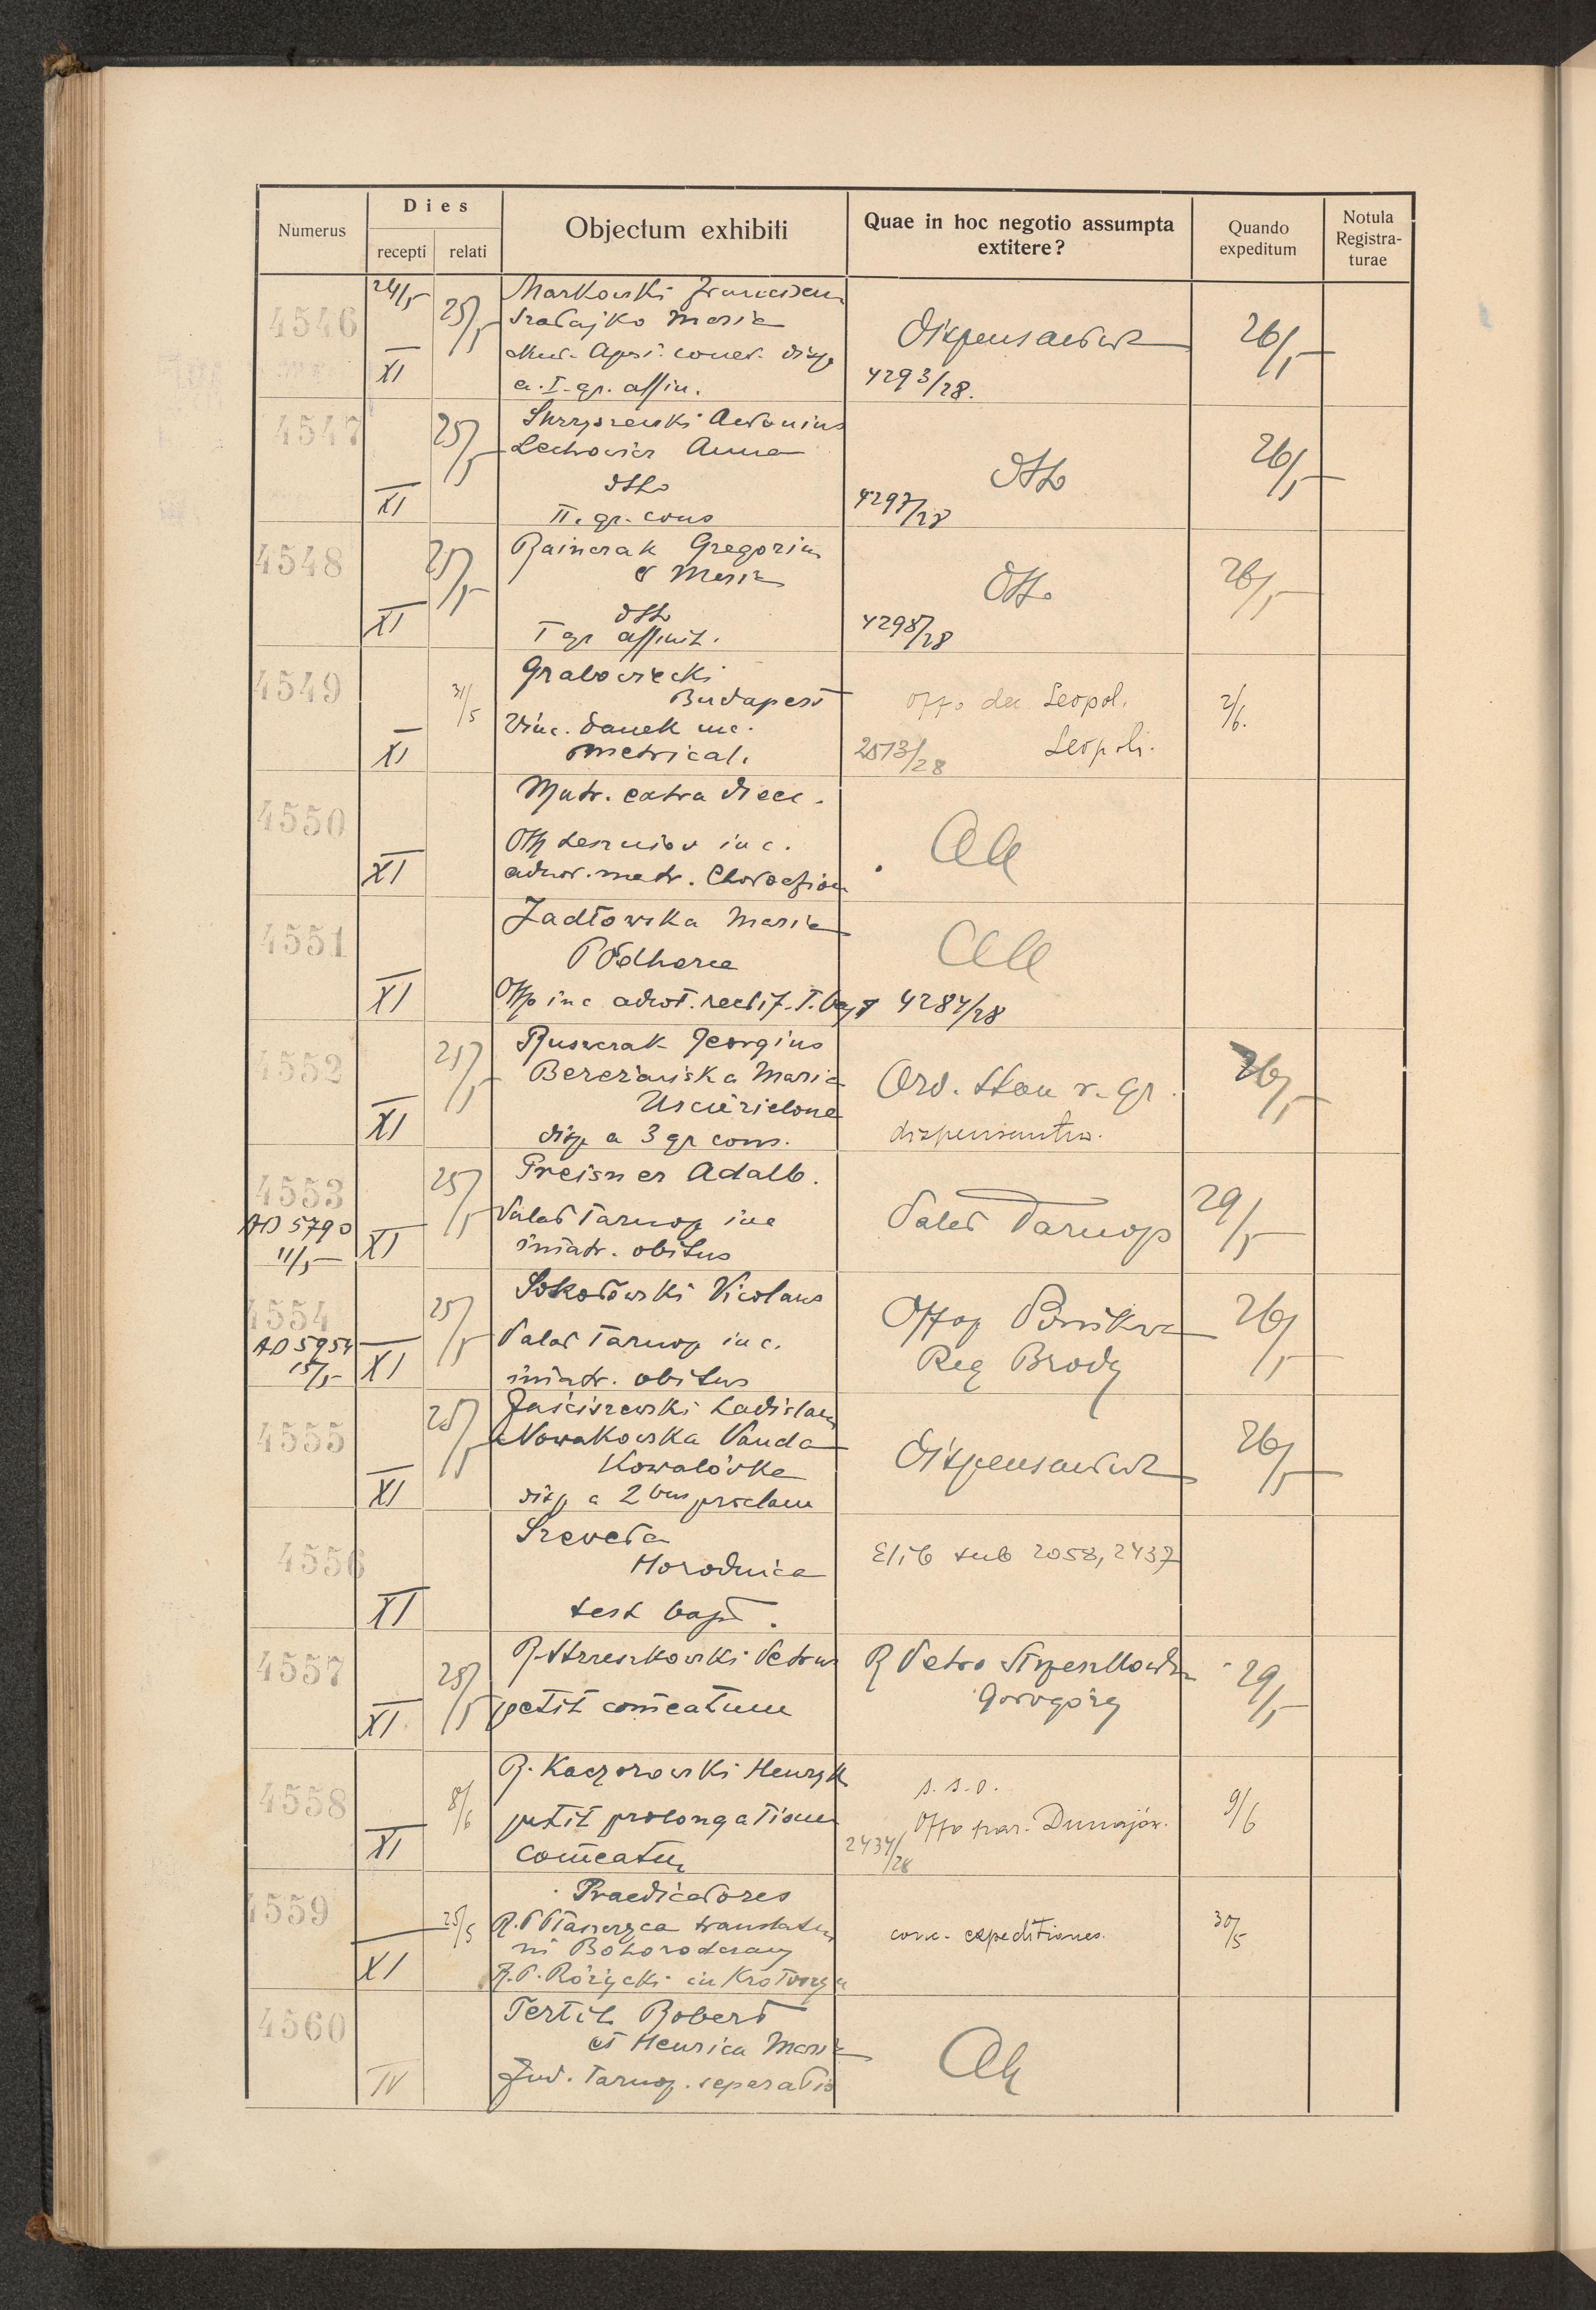 Numerus
Dies
recepti relati
Objectum exhibiti
Quae in hoc negotio assumpta
extitere?
Quando
expeditum
Notula
Registra-
turae
4546 24/5 25/5 Markowski
Maria
Nunt. disp
a. I. gr. affin.
XI
Dispensantur
4293/28.
26/5
4547 25/5 Antonius
Lechowicz Anna
dtto
II. gr. cons
XI
dtto
4297/28
26/5
4548 25/5 Gregorius
et Maria
dtto
I gr affinit.
XI
dtto
4298/28
26/5
4549 31/5 Grabowiecki
Budapest
Vinc. Danek inc.
metrical.
XI
Leopol.
Leopoli.
2513/28
2/6.
4550 Matr. extra dioec.
inc.
adnot. matr.
XI
Aa
4551 Zadłowska Maria
Podhorce
Offo inc adnot. rectif. T. bapt
XI
Aa
4284/28
4552 25/5 Georgius
Bereżańska Maria
Uście zielone
disp a 3 gr cons.
XI
Ord. Stan r. gr.
dispensentur.
26/5
4553 25/5 Preisner Adalb.
AD 5790
11/5
XI
Palat Tarnop inc
imatr. obitus
Palat Tarnop
29/5
4554 25/5 Sokołowski Nicolaus
AD 5954
15/5
XI
Palat Tarnop inc.
imatr. obitus
Offop Ponikwa
Reg Brody
26/5
4555 25/5 Jaściszewski Ladislaus
Nowakowska Vanda
Kowalówka
disp a 2bus proclam
XI
Dispensantur
26/5
4556 Szeweta
Horodnica
test bapt.
XI
Elib sub 2058, 2437
4557 28/5 R. Strzeszkowski Petrus
petit comeatum
XI
R Petro
Gołogóry
29/5
4558 8/6 R. Kaczorowski Henryk
petit prolongationem
comeatus
XI
s. s. o.
Offo par. Dunajów.
2434/28
9/6
4559 25/5 Praedicatores
R. P. translatus
in Bohorodczany
R. P. Różycki in
XI
conc. expeditiones.
30/5
4560 Tertil Robert
et Henrica Maria
Jud. Tarnop. separatio
IV
Aa